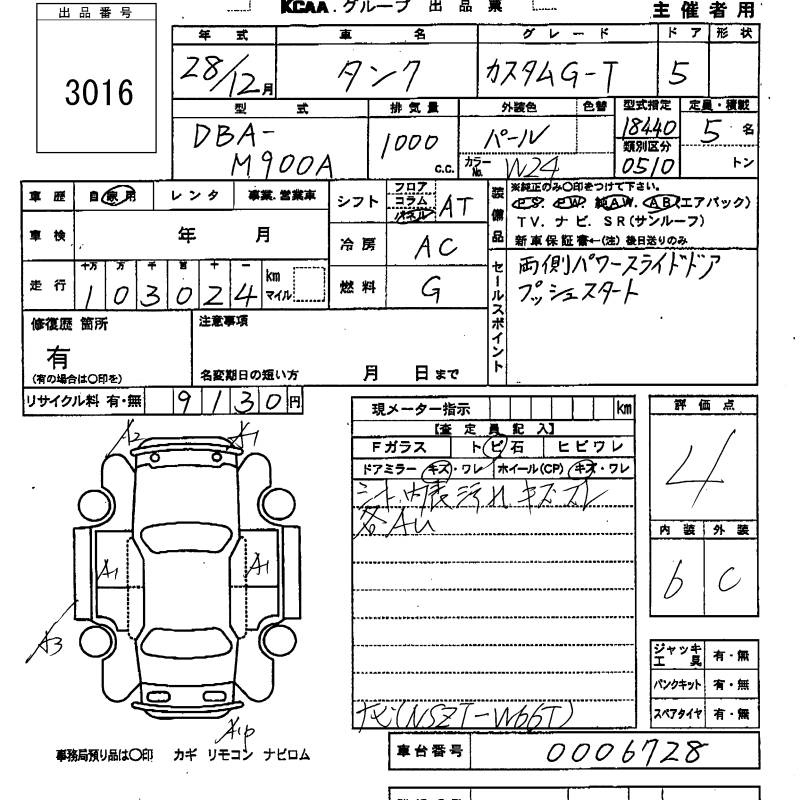 出品番号
3016
KCAA.グループ 出品票
主催者用
年式 車名 グレード ドア 形状
28/12月 タンク カスタムG-T 5
型式 排気量 外装色 色替 型式指定 定員・積載
DBA-
M900A
1000
c.c.
パール
カラーNo. W24
18440
類別区分
0510
5 名
トン
車歴 自家用 レンタ 事業.営業車
シフト フロア コラム パネル AT
装備品
※純正のみ〇印をつけて下さい。
P.S. P.W. 純A.W. A.B.(エアバック)
T.V. ナビ. S R(サンルーフ)
新車保証書←(注) 後日送りのみ
車検 年 月
冷房 AC
走行 十万 万 千 百 十 一
103024
km
マイル
燃料 G
セールスポイント
両側パワースライドドア
プッシュスタート
修復歴 箇所
有
(有の場合は〇印を)
注意事項
名変期日の短い方 月 日まで
リサイクル料 有・無 9130円
現メーター指示 km
【査定員記入】
Fガラス トビ石 ヒビワレ
ドアミラー キズ・ワレ ホイール(CP) キズ・ワレ
シート.内装汚れ キズ ズレ
各AU
ナビ(NSZT-W66T)
評価点
4
内装 外装
b C
ジャッキ
工具 有・無
パンクキット 有・無
スペアタイヤ 有・無
A2 A1
A1 A1
A3
事務局預り品は〇印 カギ リモコン ナビロム
車台番号 0006728